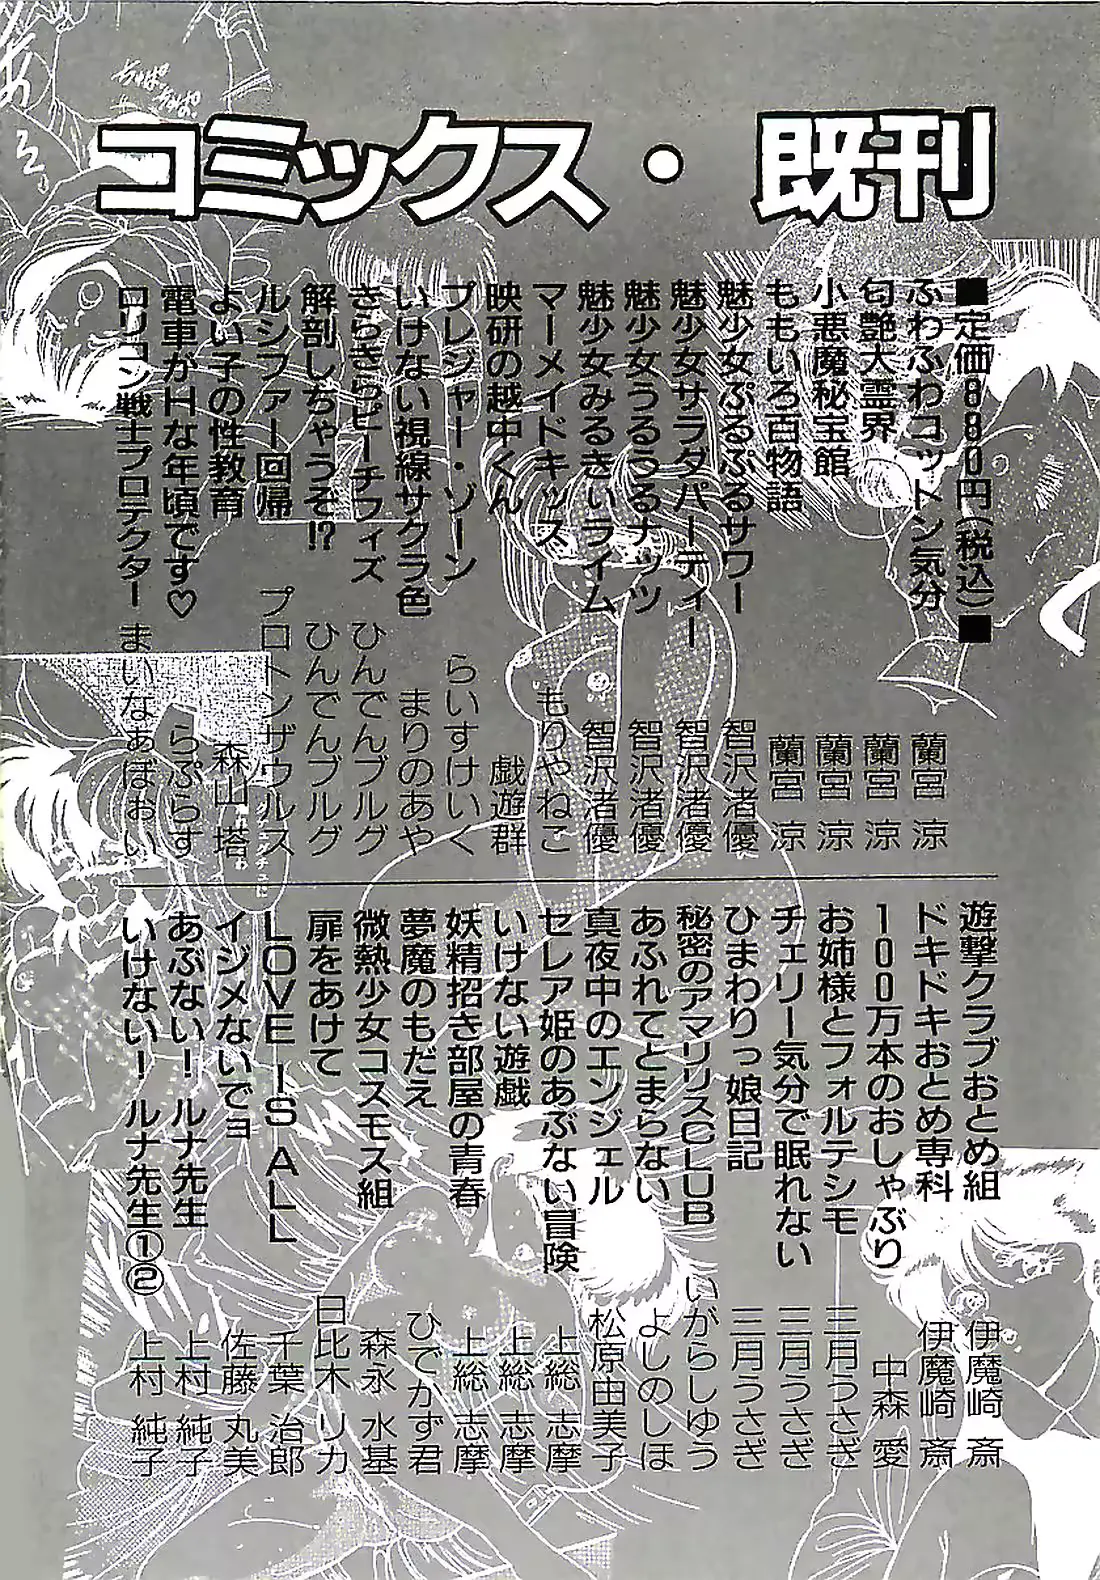 コミックス・既刊
■定価880円(税込)■
ふわふわコットン気分 蘭宮 涼
匂艶大霊界 蘭宮 涼
小悪魔秘宝館 蘭宮 涼
ももいろ百物語 蘭宮 涼
魅少女ぷるぷるサワー 智沢渚優
魅少女サラダパーティー 智沢渚優
魅少女うるうるナッツ 智沢渚優
魅少女みるきぃライム 智沢渚優
マーメイドキッス もりやねこ
映研の越中くん 戯遊群
プレジャー・ゾーン らいすけいく
いけない視線サクラ色 まりのあや
きらきらピーチフィズ ひんでんブルグ
解剖しちゃうぞ!? ひんでんブルグ
ルシファー回帰 プロトンザウルス
よい子の性教育 森山 塔
電車がHな年頃です♡ らぷらす
ロリコン戦士プロテクター まいなぁぼぉい
遊撃クラブおとめ組 伊魔崎 斎
ドキドキおとめ専科 伊魔崎 斎
100万本のおしゃぶり 中森 愛
お姉様とフォルテシモ 三月うさぎ
チェリー気分で眠れない 三月うさぎ
ひまわりっ娘日記 三月うさぎ
秘密のアマリリスCLUB いがらしゆう
あふれてとまらない よしのしほ
真夜中のエンジェル 松原由美子
セレア姫のあぶない冒険 上総 志摩
いけない遊戯 上総 志摩
妖精招き部屋の青春 上総 志摩
夢魔のもだえ ひでかず君
微熱少女コスモス組 森永 水基
扉をあけて 日比木 リカ
LOVE IS ALL 千葉 治郎
イジメないでヨ 佐藤 丸美
あぶない!ルナ先生 上村 純子
いけない!ルナ先生①② 上村 純子